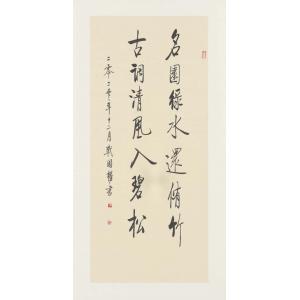 名園綠水還脩竹
古調清風入碧松
二零二零年十二月戴国華書